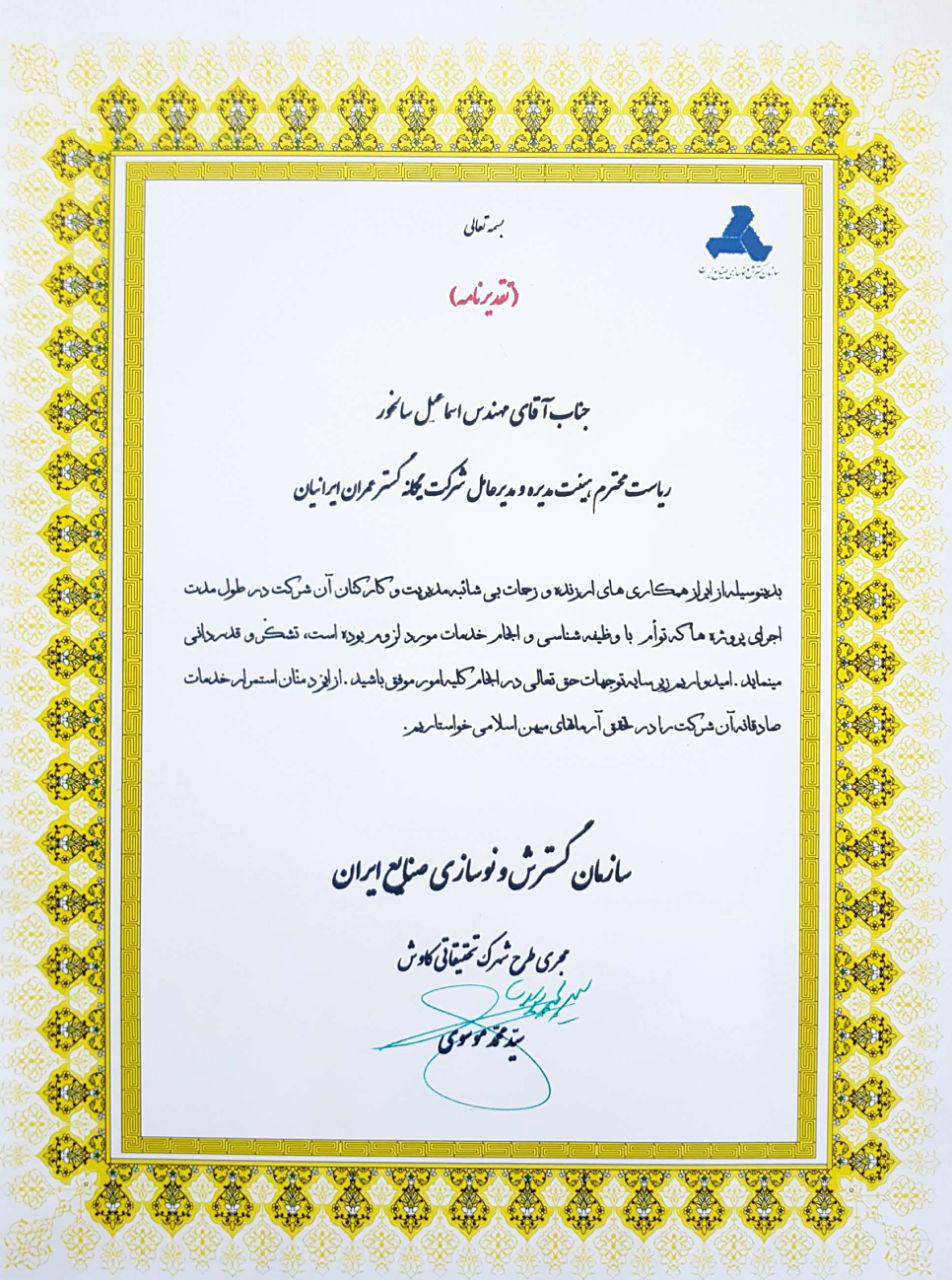 بسمه تعالی
سازمان گسترش و نوسازی صنایع ایران
(تقدیرنامه)
جناب آقای مهندس اسماعیل سالخور
ریاست محترم هیئت مدیره و مدیرعامل شرکت یگانه گستر عمران ایرانیان
بدینوسیله از ابراز همکاری های ارزنده و زحمات بی شائبه مدیریت و کارکنان آن شرکت در طول مدت
اجرای پروژه ها که توأم با وظیفه شناسی و انجام خدمات مورد لزوم بوده است، تشکر و قدردانی
مینماید. امیدواریم زیر سایه توجهات حق تعالی در انجام کلیه امور موفق باشید. از ایزد منان استمرار خدمات
صادقانه آن شرکت را در تحقق آرمانهای میهن اسلامی خواستاریم.
سازمان گسترش و نوسازی صنایع ایران
مجری طرح شهرک تحقیقاتی کاوش
سیّد محمّد موسوی